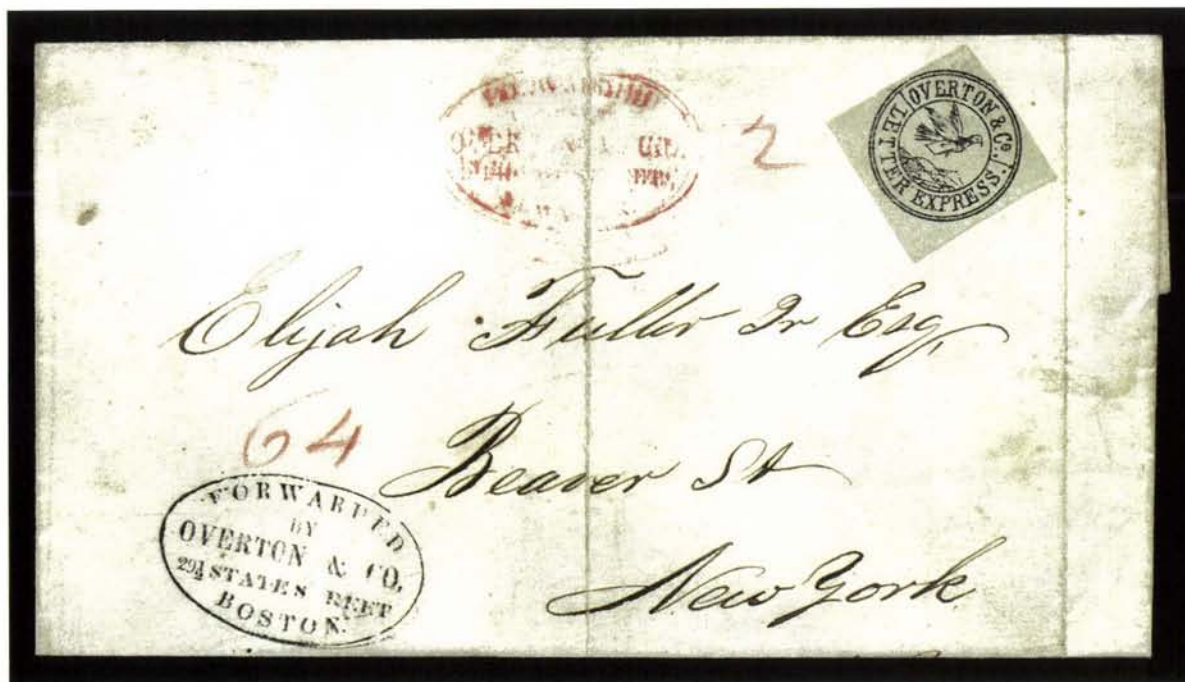 2
OVERTON & Co.
LETTER EXPRESS.
Elijah Fuller Jr Esq,
64
Beaver St
New York
FORWARDED
BY
OVERTON & CO.
29½ STATE S REET
BOSTON.